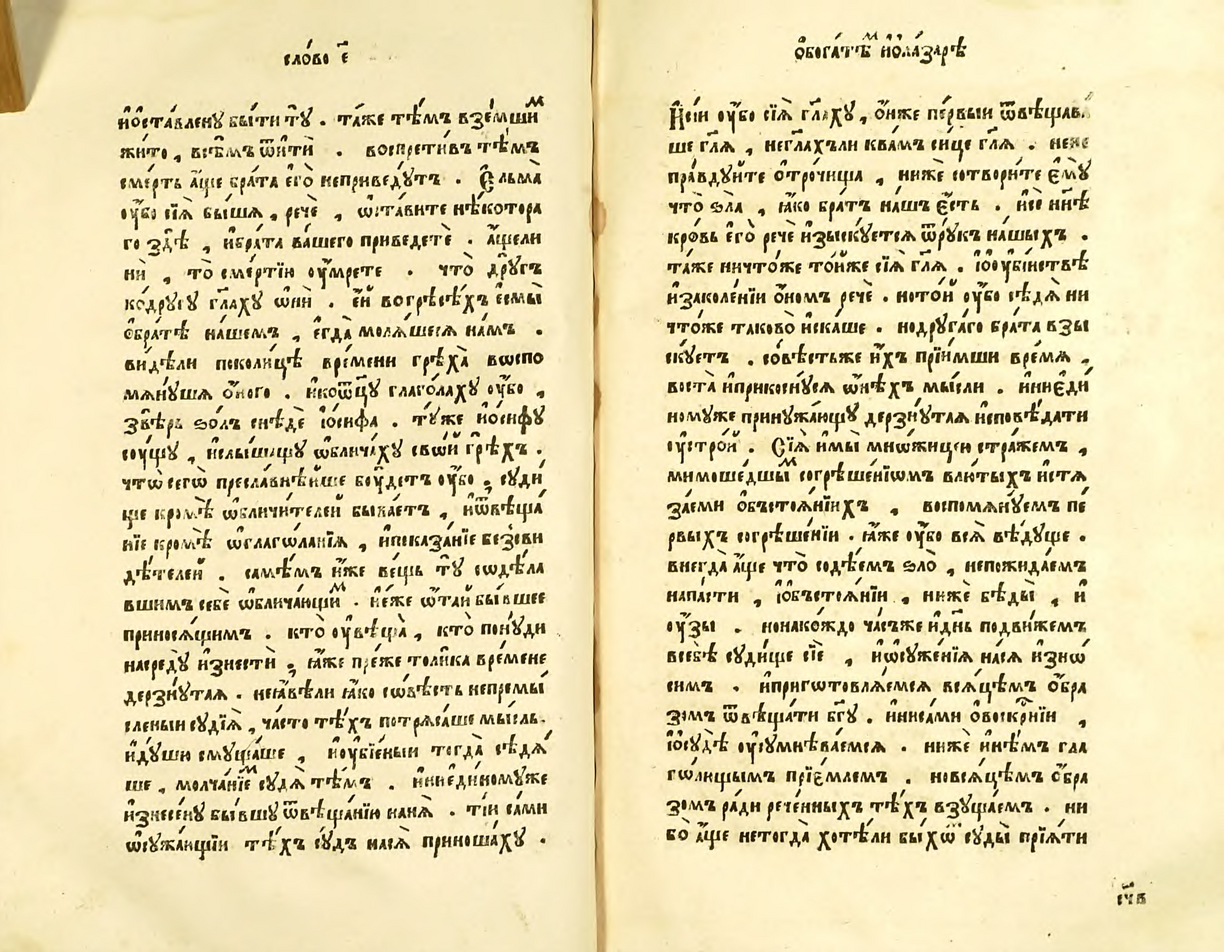 сло́во є҃
и҆ѡста́влену бы́ти тꙋ̀ . та́же тѣ́мъ взе́мши м
жи́то , всѣ́мъ ѿитѝ . воспрети́въ тѣ́мъ
сме́рть а҆́ще бра́та є҆го̀ неприведꙋ́тъ . Є҆льма
ᲂу҆́бо сїѧ̀ бы́шѧ , речѐ , ѡ҆ста́вите нѣ́котора
го здѣ̀ , и҆бра́та ва́шего приведе́те . а҆́щели
нѝ , то̀ сме́ртїи ᲂу҆́мрете . что̀ дрꙋ́гъ
кодрꙋ́гꙋ гл҃ахꙋ ѡ҆нѝ . є҆́й вогрѣсѣ́хъ є҆смы̀
ѻ҆бра́тѣ на́шемъ , є҆гда̀ молѧ́шесѧ на́мъ .
ви́дѣли поколи́цѣ вре́мени грѣха̀ воспо
мѧнꙋ́шѧ ѻ҆́ного . и҆коѿцꙋ̀ глаго́лахꙋ ᲂу҆́бо ,
ѕвѣ́рь ѕо́лъ снѣ́де і҆ѡ́сифа . тꙋ́же и҆о́сифꙋ
сꙋ́щꙋ , и҆слы́шащꙋ ѡ҆блича́хꙋ сво́й грѣ́хъ .
что̀ сегѡ̀ пресла́внѣйше бꙋ́детъ ᲂу҆́бо , сꙋди́
ще кромѣ̀ ѡ҆бличи́телей быва́етъ , и҆ѿвѣща́
нїе кромѣ̀ ѡ҆глаго́ланїѧ , и҆показа́нїе безсви
дѣ́телей . самѣ́мъ и҆́же ве́щь тꙋ̀ содѣ́ла
вшимъ себѐ ѡ҆блича́ющим . и҆е҆́же ѿта́й бы́вшее
принося́щимъ . кто̀ ᲂу҆вѣща̀ , кто̀ понꙋ́ди
насредꙋ̀ и҆знестѝ , ꙗ҆̀же пре́же толи́ка вре́мене
дерзнꙋ́таѧ . неꙗ҆́вѣли ꙗ҆́ко со́вѣсть непремы́
сленыи сꙋдїѧ̀ , ча́сто тѣ́хъ потрѧса́ше мы́сль .
и҆дꙋ́шꙋ смꙋща́ше , и҆ᲂу҆бїе́ныи тогда̀ сѣдѧ́
ше , молча́нїем сꙋдѧ̀ тѣ́мъ . и҆ниє҆ди́номꙋже
и҆знесе́нꙋ бы́вшꙋ ѿвѣща́нїю на́нѧ . ті́и са́ми
ѡ҆сꙋжа́ющїи тѣ́хъ сꙋ́дъ насѧ̀ приноша́хꙋ .
ѻ҆бога́тѣм и҆ѻла́зарѣ
И҆сїи ᲂу҆́бо сїѧ̀ гл҃ахꙋ , ѻ҆́ниже пе́рвыи ѿвѣщава́
ше гл҃ѧ , негл҃ахъли ква́мъ си́це гл҃ѧ . нене
пра́вдꙋйте ѻ҆трочи́ща , ни́же сотвори́те є҆мꙋ̀
что̀ ѕла̀ , ꙗ҆́ко бра́тъ на́шъ є҆́сть . и҆сѐ нн҃ѣ
кро́вь є҆го̀ речѐ и҆зы́скꙋетсѧ ѿрꙋ́къ на́шыхъ .
та́же ничто́же то́йже сїѧ̀ гл҃ѧ . і҆оᲂу҆бі́йствѣ
и҆заколе́нїи ѻ҆́номъ речѐ . ното́й ᲂу҆́бо сѣдѧ̀ ни
что́же таково̀ и҆ска́ше . нодрꙋга́го бра́та взы
скꙋ́етъ . со́вѣстьже и҆́хъ прїи́мши вре́мѧ ,
воста̀ и҆прикоснꙋ́сѧ ѡ҆нѣ́хъ мы́сли . и҆ниє҆ди́
номꙋже принꙋжа́ющꙋ дерзнꙋ́таѧ и҆сповѣ́дати
ᲂу҆стро́й . Сїѧ̀ и҆ мы̀ мно́жицею стра́жемъ ,
мимоше́дшым согрѣше́нїѡмъ влю́тыхъ и҆стѧ
за́еми ѻ҆бъстоѧ́нїихъ , воспомѧнꙋ́емъ пе́
рвыхъ согрѣше́нїи . ꙗ҆́же ᲂу҆́бо всѧ̀ вѣ́дꙋще .
внегда̀ а҆́ще что̀ содѣ́емъ ѕло̀ , непожида́емъ
напа́сти , і҆ѻбъстоѧ́нїи , ни́же бѣды̀ , и҆
ᲂу҆́зы . нонако́ждо ча́съже и҆дн҃ь подви́жемъ
всебѣ̀ сꙋди́ще сїѐ , и҆ѡсꙋже́нїѧ насѧ̀ и҆зно́
симъ . и҆пригото́влѧемсѧ всѧ́цѣмъ ѻ҆́бра
зомъ ѿвѣща́ти бг҃ꙋ . и҆ниса́ми ѻ҆воскрн҃їи ,
і҆осꙋдѣ̀ ᲂу҆сꙋмнѣва́емсѧ . ни́же и҆нѣ́мъ гла
го́лющымъ прїє́млемъ . новсѧ́цѣмъ ѻ҆́бра
зомъ ра́ди рече́нныхъ тѣ́хъ взꙋща́емъ . ни
бо̀ а҆́ще нетогда̀ хотѣ́ли бы́хом сꙋды̀ прїѧ́ти
сч҃в